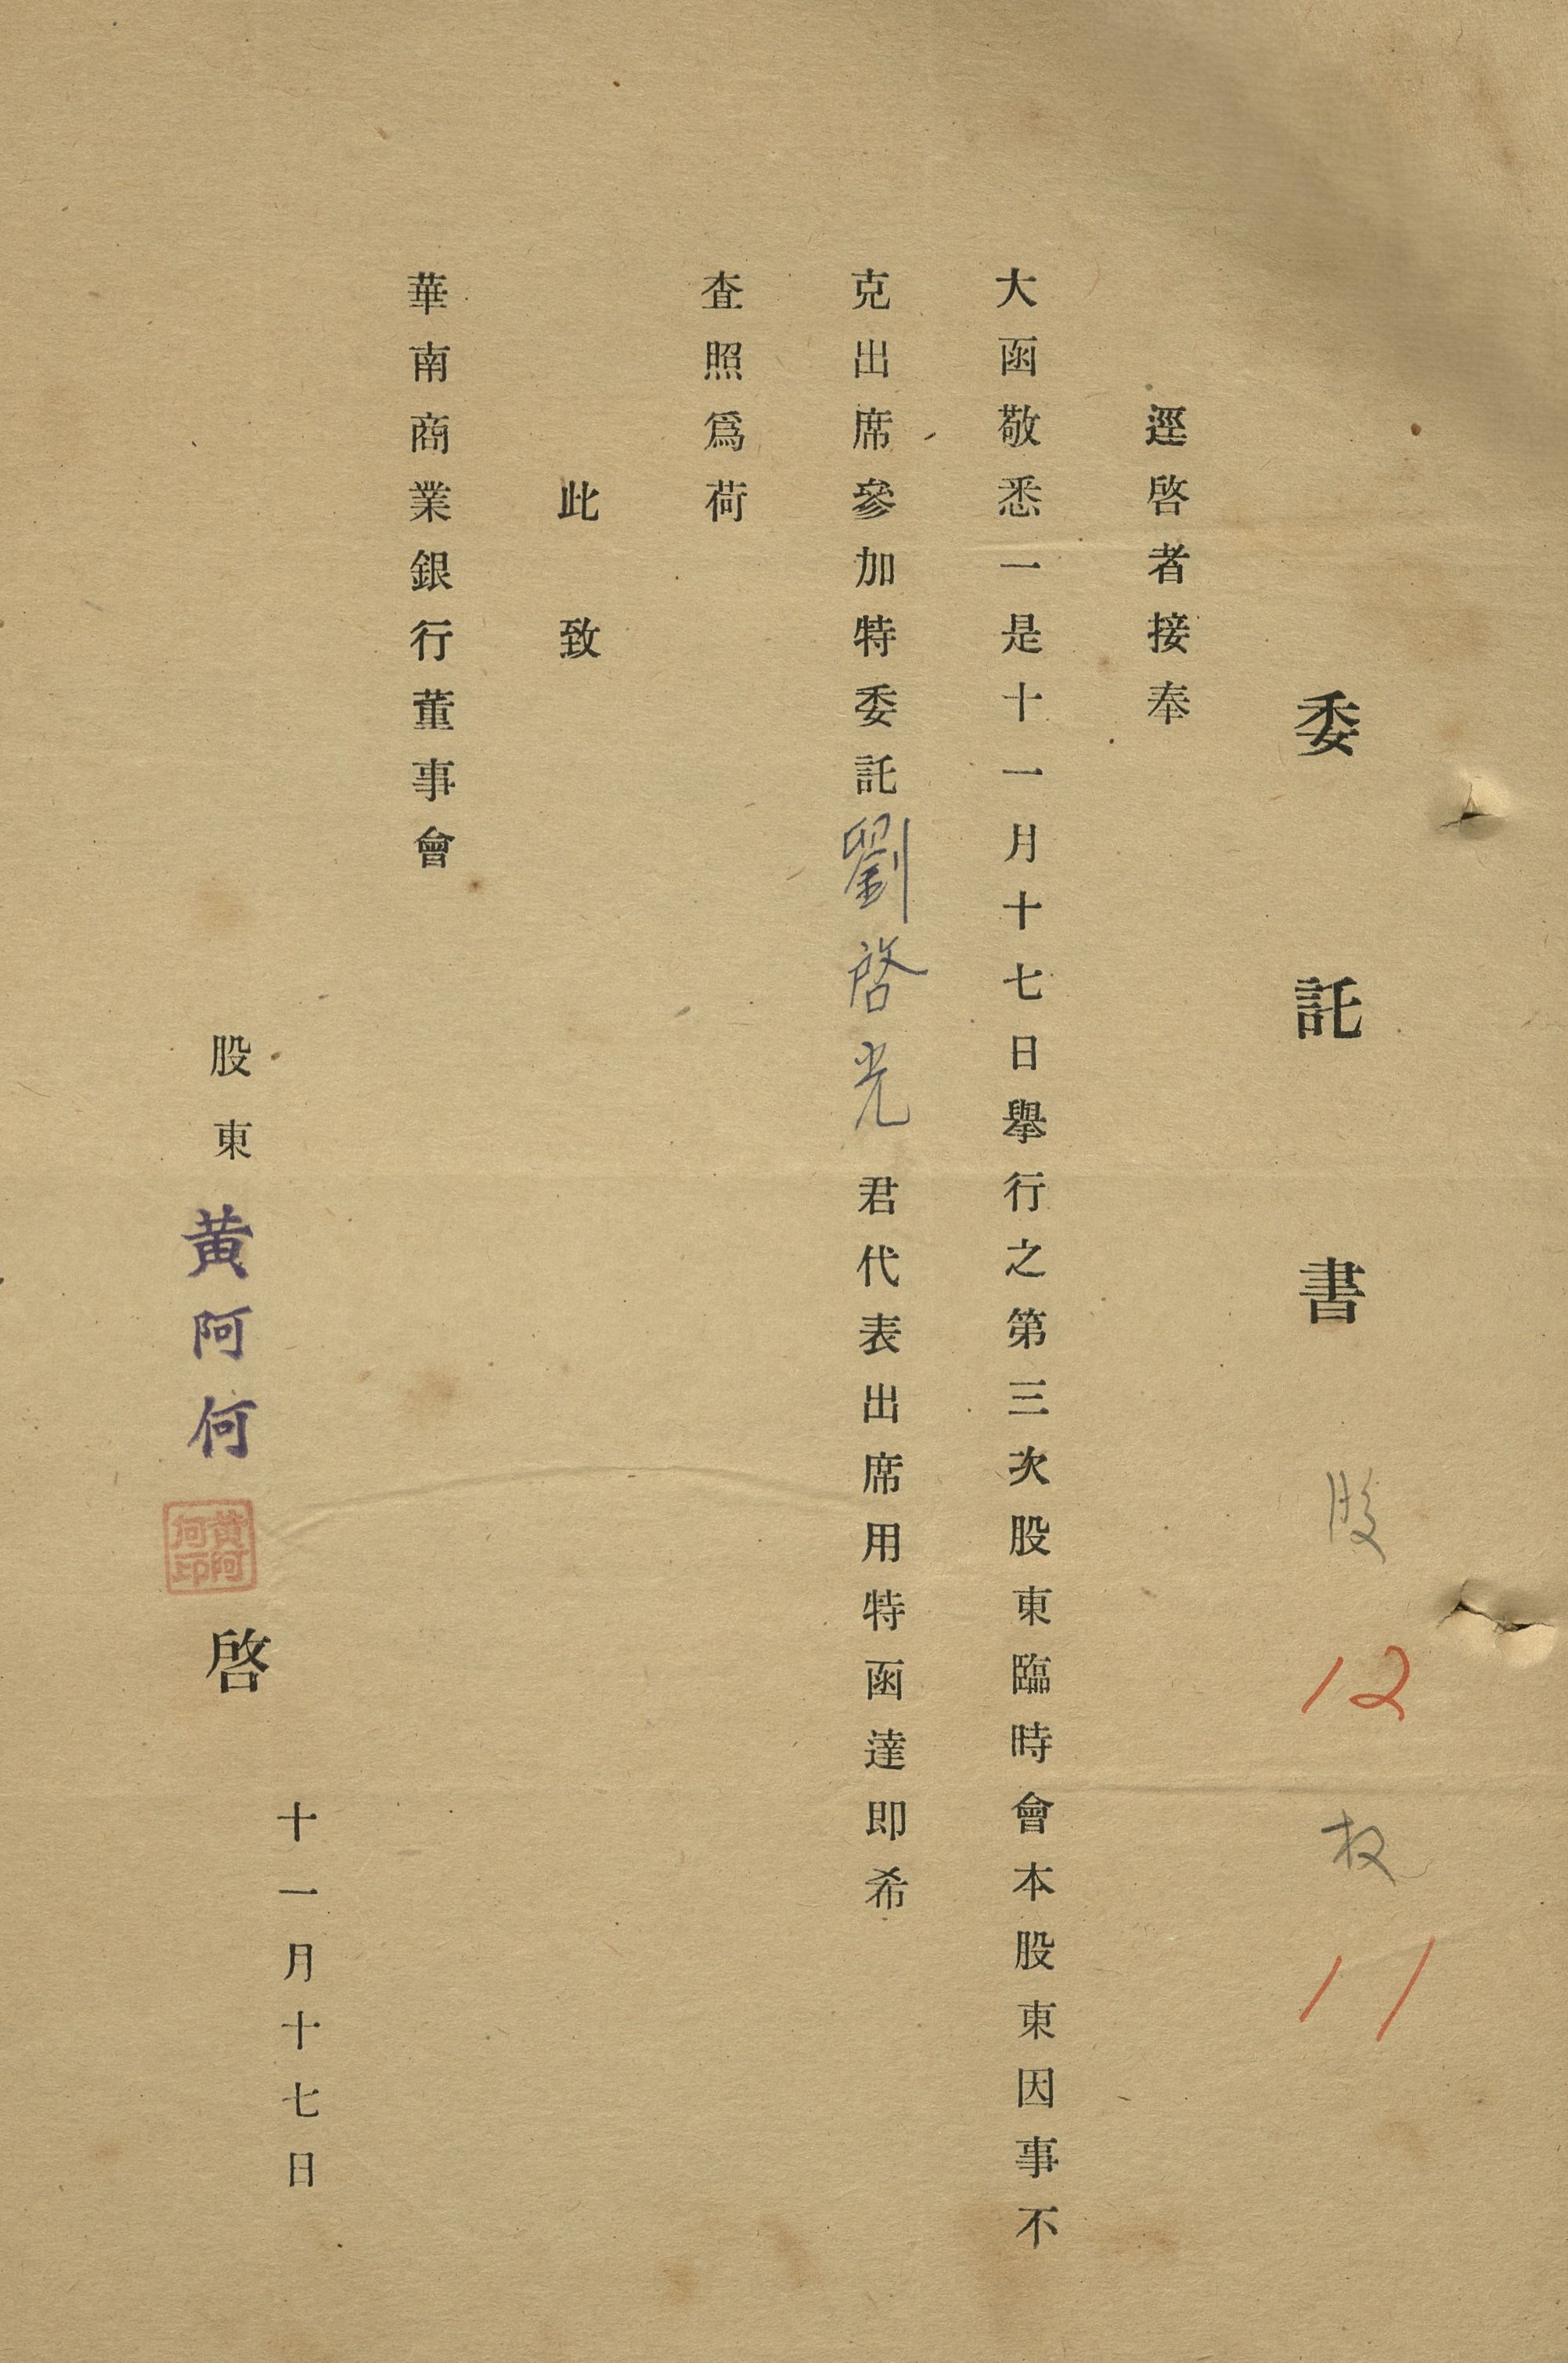 委託書 股 12 权 11
逕啓者接奉
大函敬悉一是十一月十七日舉行之第三次股東臨時會本股東因事不
克出席參加特委託劉啓光君代表出席用特函達即希
查照爲荷
此致
華南商業銀行董事會
十一月十七日
股東 黄阿何 啓
黄阿何印